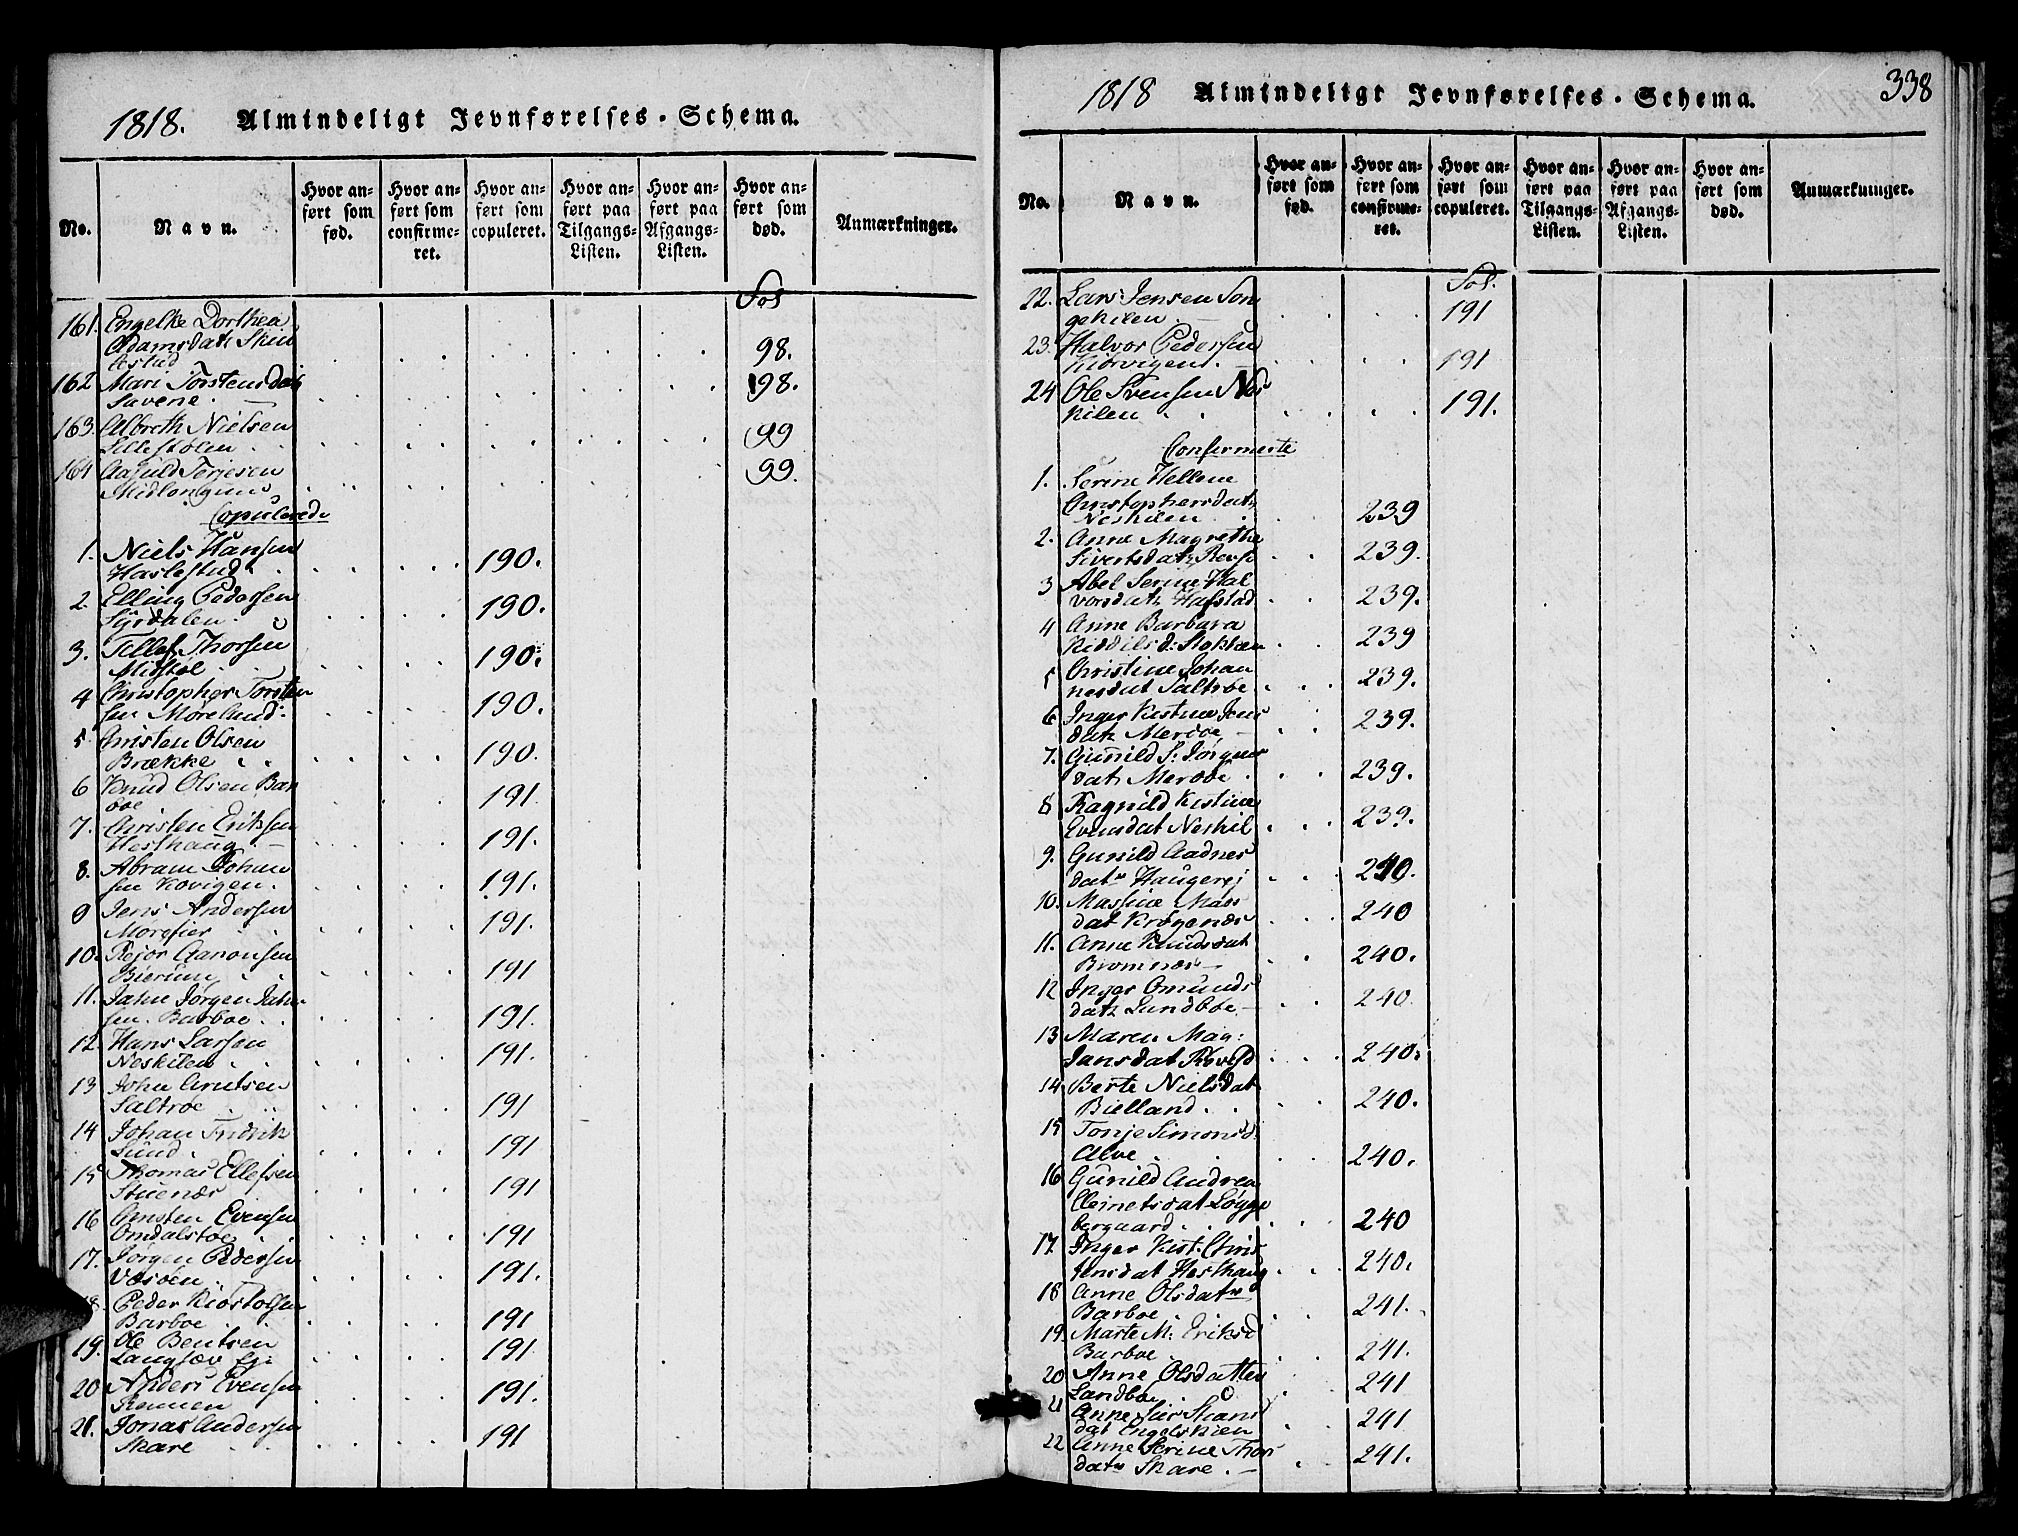 1818. Almindeligt Jevnførelses-Schema.
No. Navn. Hvor anført som fød. Hvor anført som confirmeret. Hvor anført som copuleret. Hvor anført paa Tilgangs-Listen. Hvor anført paa Afgangs-Listen. Hvor anført som død. Anmærkninger.
Fol
161. Engelke Dorthea
Adamsdatr
98.
162 Mari Torstensdatr
Savene. 98.
163. Albreth Nielsen
Lillestølen 99
164 Aasuld Terjesen
99.
Copulerede
1. Niels Hansen
Haslestad 190.
2. Elling Pedersen
Syrdalen. 190.
3. Tellef Thorsen
Midstøl 190.
4 Christopher Torsten
sen Møreland. 190.
5 Christen Olsen
Brække 190.
6 Knud Olsen Bar
boe 191
7. Christen Eriksen
Hesthaug 191.
8. Abram Johan
sen Kovigen. 191.
9 Jens Andersen
Morefier 191.
10. Rejor Aanonsen
Bierung 191
11. Jahn Jørgen Jahn
sen. Barboe 191.
12. Hans Larsen
Neskilen 191.
13 John Arntsen
Saltroe 191
14 Johan Fridrik
Lund. 191
15 Thomas Ellefsen
Stuenæs 191
16 Christen Evensen
Omdalstøe 191
17. Jørgen Pedersen
Væsøen 191.
18. Peder Kiøstolsen
Barboe 191
19. Ole Bentsen
Langsæv Ej: 191
20 Anders Evensen
191.
21. Jonas Andersen
Skare 191
1818 Almindeligt Jevnførelses-Schema. 338
No. Navn. Hvor anført som fød. Hvor anført som confirmeret. Hvor anført som copuleret. Hvor anført paa Tilgangs-Listen. Hvor anført paa Afgangs-Listen. Hvor anført som død. Anmærkninger.
Fol.
22. Lars Jensen Son
gekilen 191
23. Halvor Pedersen
Kiørvigens. 191
24 Ole Svensen Nes
kilen 191.
Confirmerte
1. Serine Hellene
Christophersdatr
Neskilen 239
2. Anne Magrethe
Sivertsdatr 239.
3 Abel Serine Hal
vorsdatr Hafstad 239.
4 Anne Barbara
Kiddilsd: Stokken 239
5 Christine Johan
nesdat Saltroe 239.
6 Inger Kistine Jens
datr Merdøe 239.
7. Gunild S: Jørgens
datr Merdøe 239.
8 Ragnild Kistine
Evensdat Neskil 239.
9. Gunild Aadnes
datr Haugerej 240.
10. Massine Mads
dat Krøgenæs 240
11. Anne Knudsdat
Bromnæs 240.
12 Inger Omunds
datr Sandboe 240.
13 Maren Mag:
Jansdat 240.
14 Berte Nielsdat
Bielland. 240.
15 Tonje Simonsd.
Alve 240.
16 Gunild Andrea
Cleinetsdat Løgge
bergaard 240
17. Inger Kist: Chris
tensdat Hesthaug 240.
18 Anne Olsdatr
Barboe 241.
19. Marte M: Eriksd
Barboe 241.
20 Anne Olsdatter
Sandboe 241
21 Anne
dat Engelskien 241
22 Anne Serine Thor
datr Skare. 241.